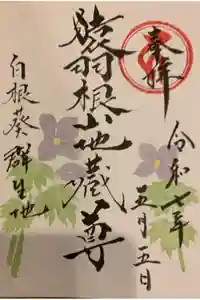 奉拝
令和七年
五月五日
羽根山地蔵尊
白根葵群生地